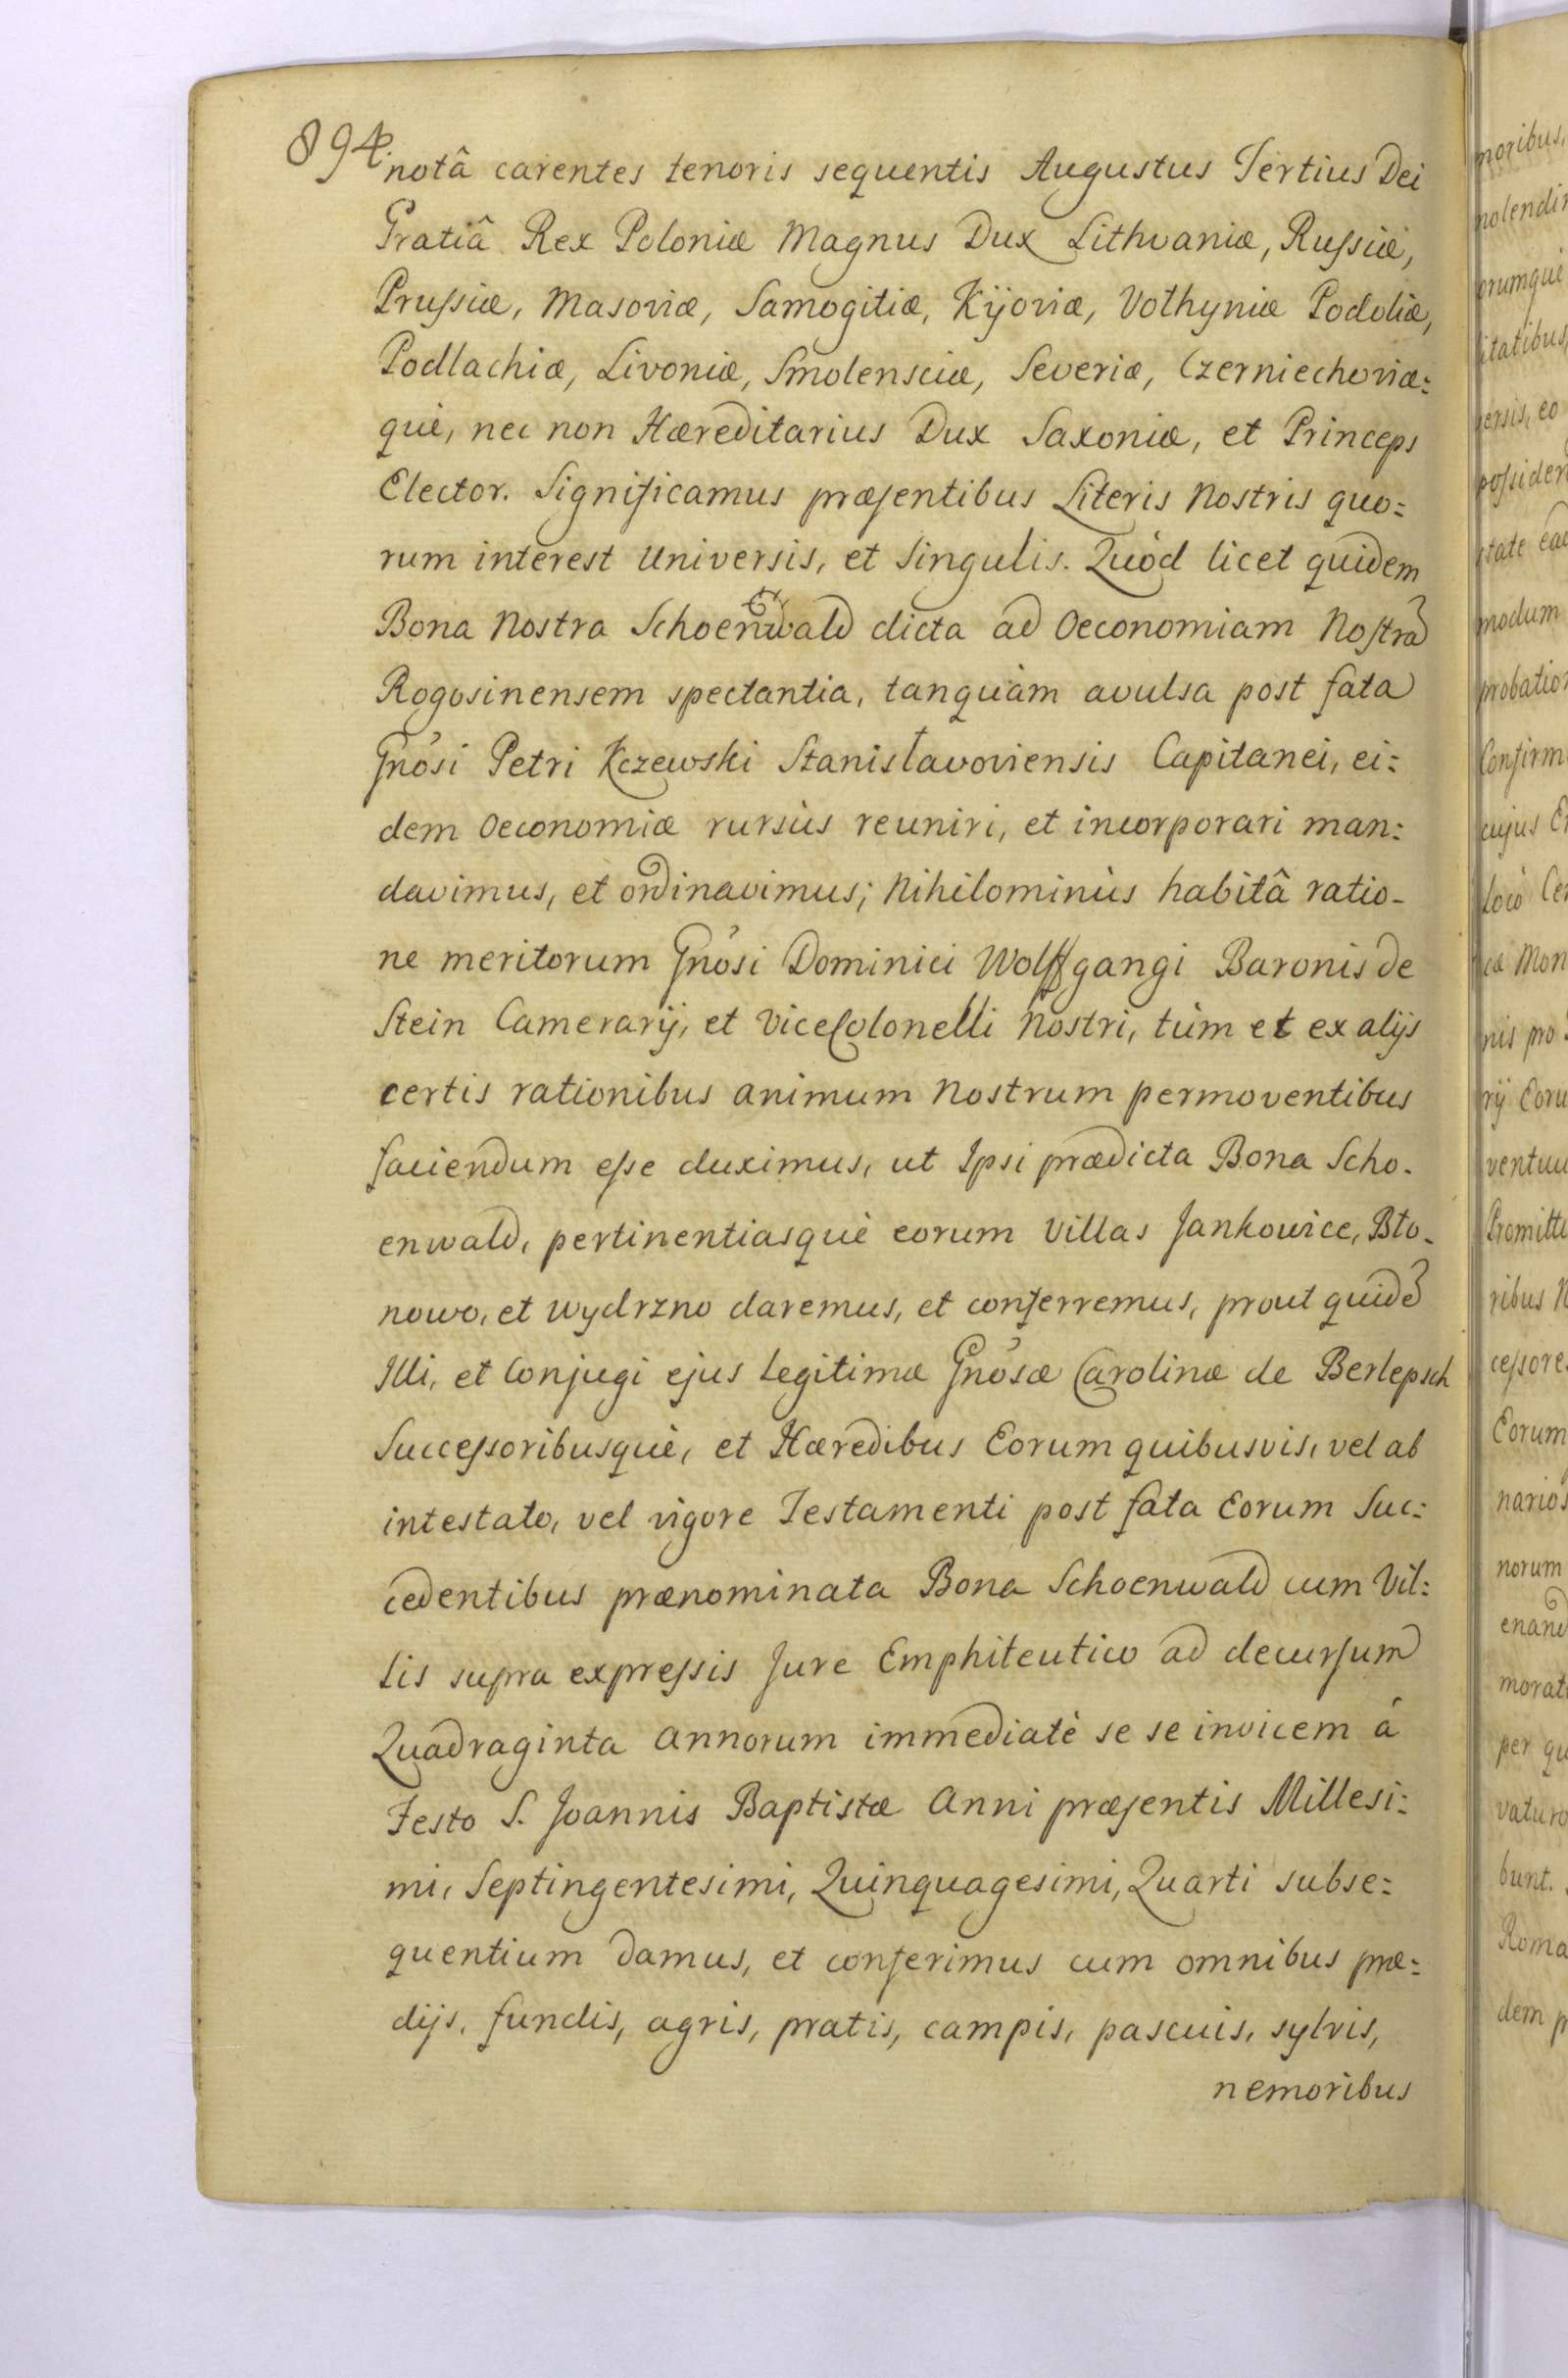 894.
notâ carentes tenoris sequentis Augustus Tertius Dei
Gratiâ Rex Poloniæ Magnus Dux Lithvaniæ, Russiæ,
Prussiæ, Masoviæ, Samogitiæ, Kijoviæ, Vołhyniæ Podoliæ,
Podlachiæ, Livoniæ, Smolensciæ, Severiæ, Czerniechoviæ=
què, nec non Hæreditarius Dux Saxoniæ, et Princeps
Elector. Significamus præsentibus Literis Nostris quo=
rum interest Universis, et Singulis. Quòd licet quidem
Bona Nostra Schoenwald dicta ad Oeconomiam Nostrã
Rogosinensem spectantia, tanquàm avulsa post fata
Gnosi Petri Kczewski Stanisłavoviensis Capitanei, ei=
dem Oeconomiæ rursùs reuniri, et incorporari man=
davimus, et ordinavimus; Nihilominùs habitâ ratio-
ne meritorum Gnosi Dominici Wolffgangi Baronis de
Stein Camerarij, et ViceColonelli Nostri, tùm et ex alijs
certis rationibus animum Nostrum permoventibus
faciendum esse duximus, ut Ipsi prædicta Bona Scho-
enwald, pertinentiasquè eorum Villas Jankowice, Bło-
nowo, et Wydrzno daremus, et conferremus, prout quidẽ
Illi, et Conjugi ejus Legitimæ Gnosæ Carolinæ de Berlepsch
Successoribusquè, et Hæredibus Eorum quibusvis, vel ab
intestato, vel vigore Testamenti post fata Eorum Suc=
cedentibus prænominata Bona Schoenwald cum Vil=
lis supra expressis Jure Emphiteutico ad decursum
Quadraginta Annorum immediatè se se invicem á
Festo S. Joannis Baptistæ Anni præsentis Millesi=
mi, Septingentesimi, Quinquagesimi, Quarti subse=
quentium damus, et conferimus cum omnibus præ=
dijs, fundis, agris, pratis, campis, pascuis, sylvis,
nemoribus